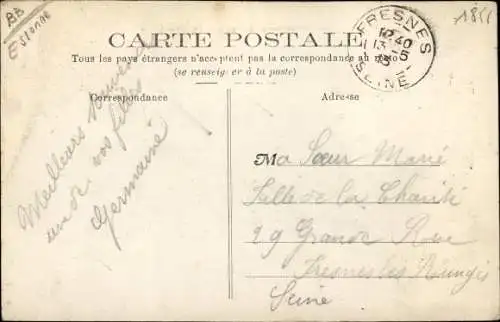 BB
Essonne
1855
CARTE POSTALE
Tous les pays étrangers n'acceptent pas la correspondance au recto
(se renseigner à la poste)
FRESNES
12 40
13 5
SEINE
Correspondance
Adresse
Meilleurs souvenirs
une de vos filles
Germaine
Ma Sœur Marie
Fille de la Charité
29 Grande Rue
Fresnes les Rungis
Seine